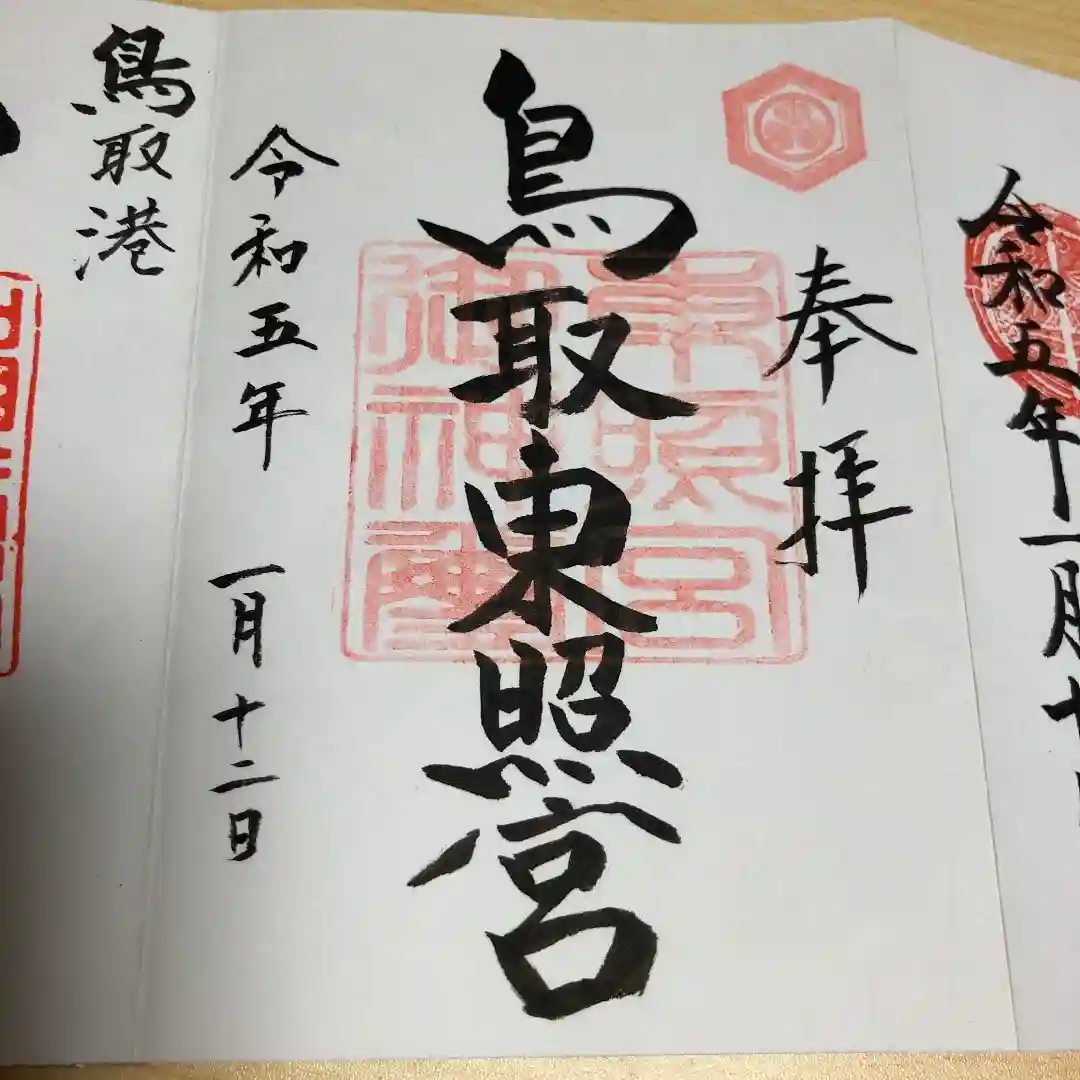 令和五年一月十
奉拝
鳥取東照宮
東照宮
御神璽
令和五年 一月十二日
鳥取港